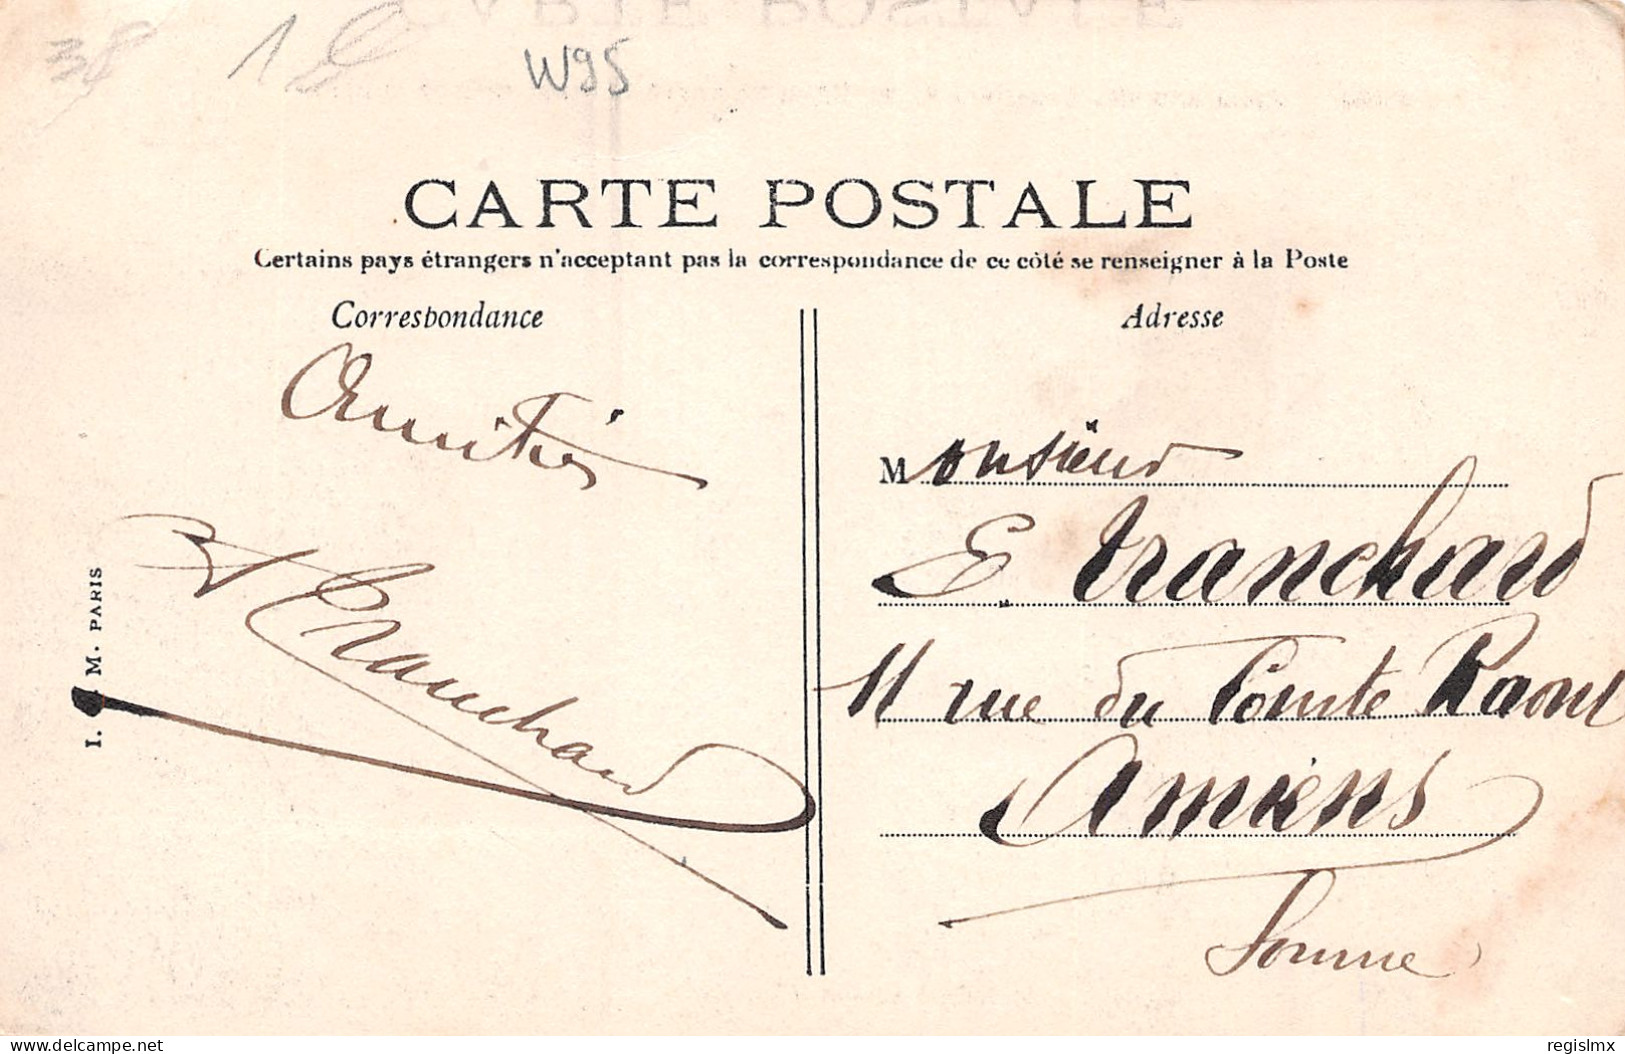 38 1
W95
CARTE POSTALE
Certains pays étrangers n'acceptant pas la correspondance de ce côté se renseigner à la Poste
Correspondance
Amitiés
Tranchard
I. M. PARIS
Adresse
Monsieur
E. Tranchard
11 rue du Pointe Raoul
Amiens
Somme
Delcampe.net
regislmx